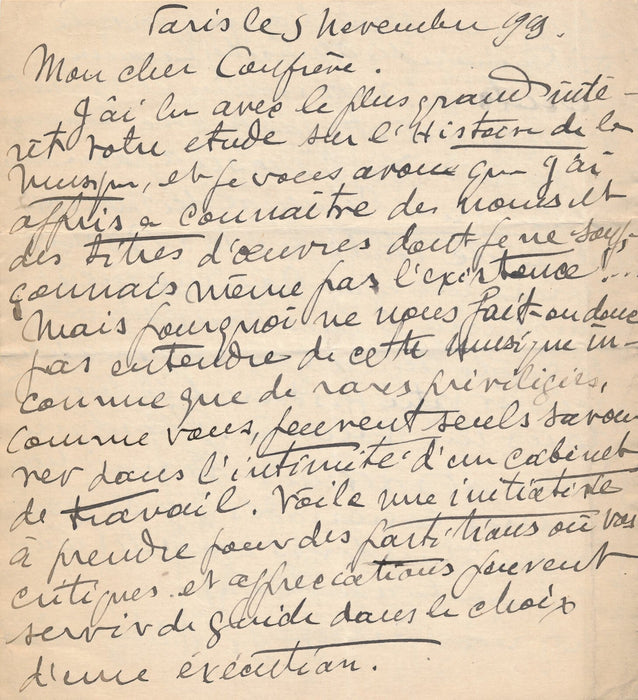 Paris le 5 Novembre
Mon cher Confrère.
J'ai lu avec le plus grand inté-
rêt votre etude sur l'Histoire de la
Musique, et je vous avoue que j'ai
appris a connaître des noms et
des titres d'œuvres dont je ne soup-
çonnais même pas l'existence...
Mais pourquoi ne nous fait-on donc
pas entendre de cette musique in-
connue que de rares priviligiés,
comme vous, peuvent seuls savou
rer dans l'intimité d'un cabinet
de travail. Voila une initiative
à prendre pour des partitions où vos
critiques et appreciations peuvent
servir de guide dans le choix
d'une exécution.